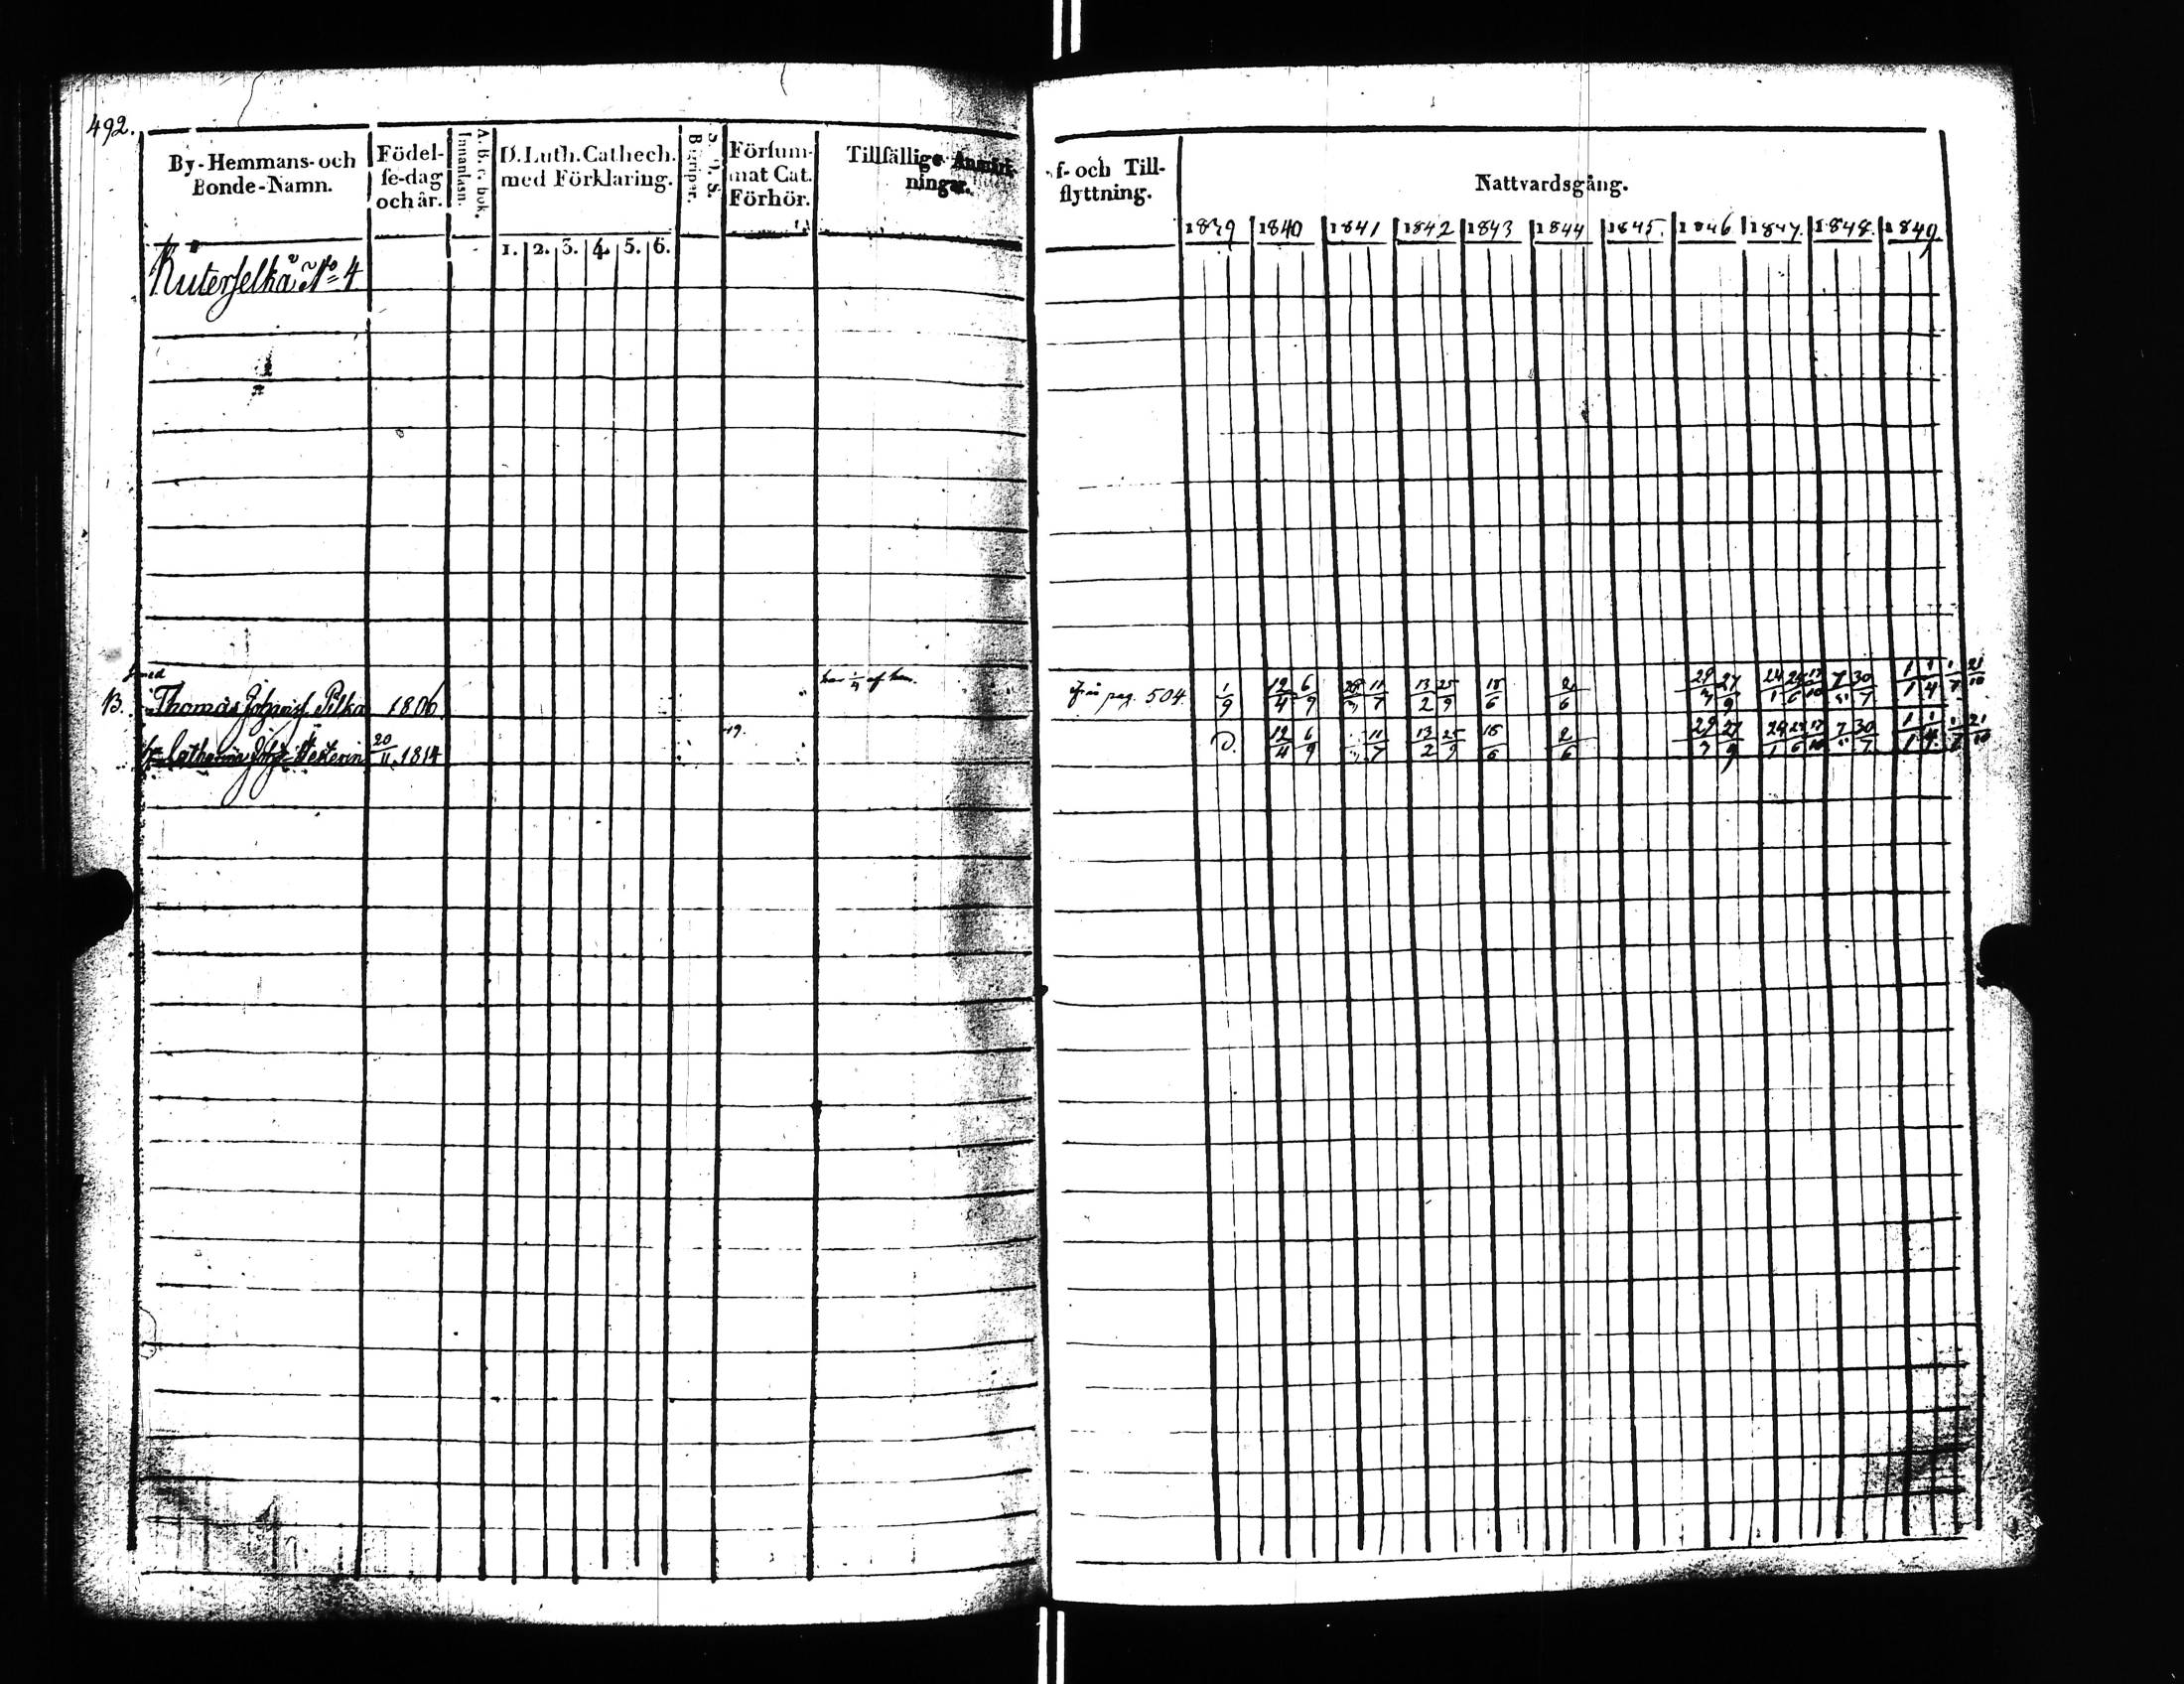 492.
By-Hemmans- och Bonde-Namn.
Födel-se-dag och år.
A. B. c. bok. Innanläsn.
D. Luth. Cathech. med Förklaring.
Begriper.
Försum-mat Cat. Förhör.
Tillfällige Anmärk-ningar.
f- och Till-flyttning.
Nattvardsgång.
1. 2. 3. 4. 5. 6.
1839 1840 1841 1842 1843 1844 1845. 1846 1847. 1848. 1849.
No 4
har 1/4 af hem.
B. Thomas Johansf. Pilka 1806 pag. 504. 1/9 12/4 6/9 11/7 13/2 25/9 18/6 2/6 29/3 27/9 24/1 24/6 17/10 7/" 30/7 1/1 1/4 1/7 21/10
Catharina 20/11 1814 19. D. 12/4 6/9 11/7 13/2 25/9 18/6 2/6 29/3 27/9 24/1 24/6 17/10 7/" 30/7 1/1 1/4 1/7 21/10